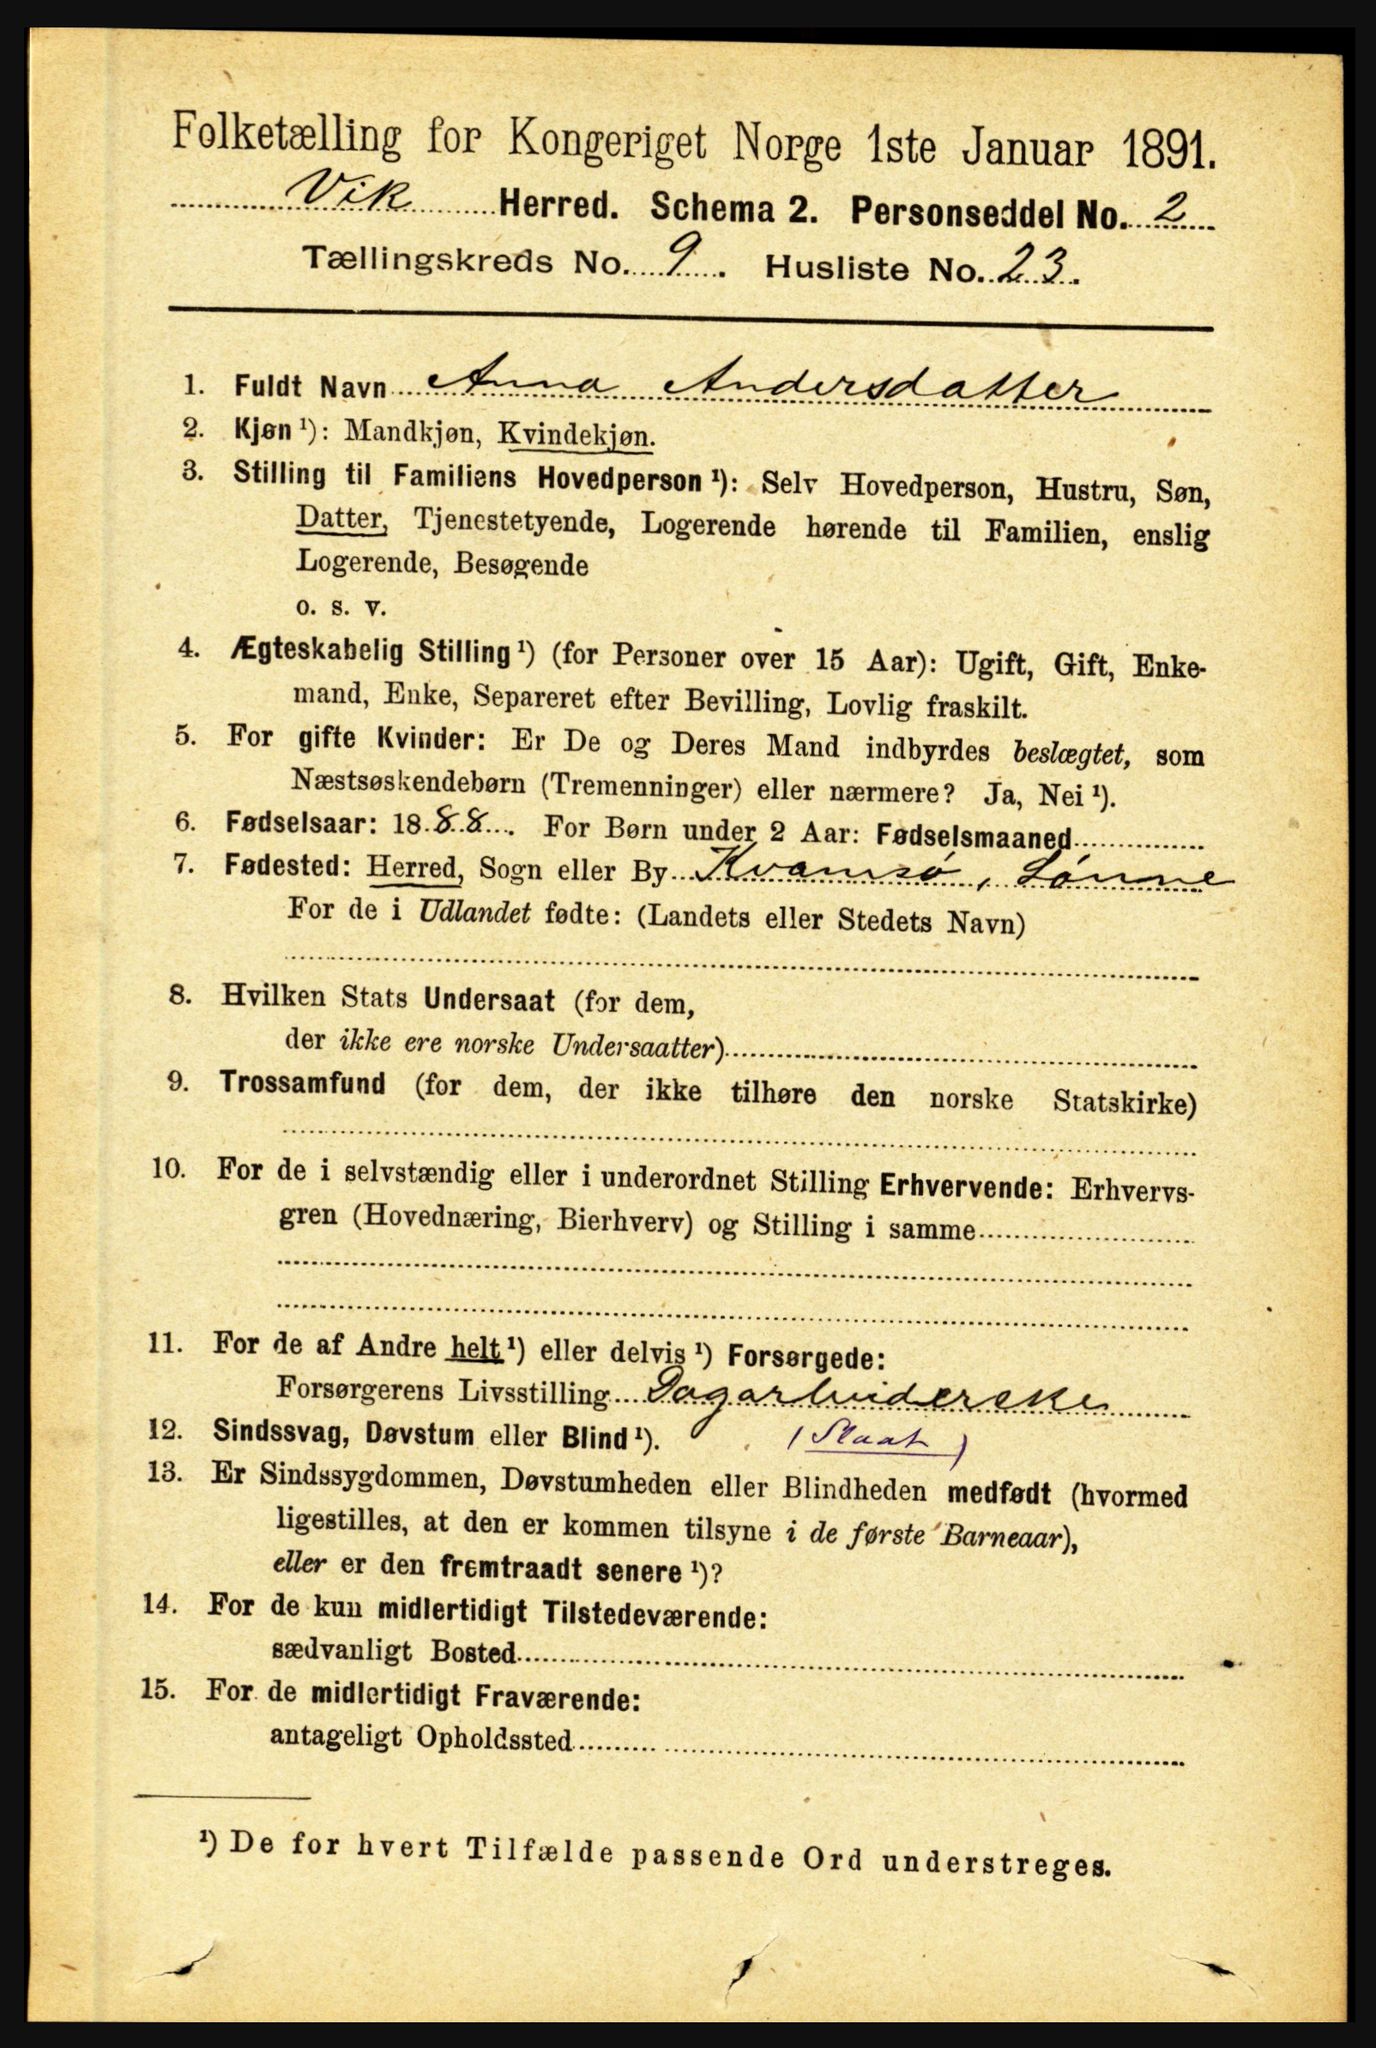 Folketælling for Kongeriget Norge 1ste Januar 1891.
Vik Herred. Schema 2. Personseddel No. 2
Tællingskreds No. 9. Husliste No. 23.
1. Fuldt Navn Anna Andersdatter
2. Kjøn ¹): Mandkjøn, Kvindekjøn.
3. Stilling til Familiens Hovedperson ¹): Selv Hovedperson, Hustru, Søn,
Datter, Tjenestetyende, Logerende hørende til Familien, enslig
Logerende, Besøgende
o. s. v.
4. Ægteskabelig Stilling ¹) (for Personer over 15 Aar): Ugift, Gift, Enke-
mand, Enke, Separeret efter Bevilling, Lovlig fraskilt.
5. For gifte Kvinder: Er De og Deres Mand indbyrdes beslægtet, som
Næstsøskendebørn (Tremenninger) eller nærmere? Ja, Nei ¹).
6. Fødselsaar: 1888. For Børn under 2 Aar: Fødselsmaaned
7. Fødested: Herred, Sogn eller By Kvamsø, Lønne
For de i Udlandet fødte: (Landets eller Stedets Navn)
8. Hvilken Stats Undersaat (for dem,
der ikke ere norske Undersaatter)
9. Trossamfund (for dem, der ikke tilhøre den norske Statskirke)
10. For de i selvstændig eller i underordnet Stilling Erhvervende: Erhvervs-
gren (Hovednæring, Bierhverv) og Stilling i samme
11. For de af Andre helt ¹) eller delvis ¹) Forsørgede:
Forsørgerens Livsstilling Dagarbeiderske
12. Sindssvag, Døvstum eller Blind ¹).
13. Er Sindssygdommen, Døvstumheden eller Blindheden medfødt (hvormed
ligestilles, at den er kommen tilsyne i de første Barneaar),
eller er den fremtraadt senere ¹)?
14. For de kun midlertidigt Tilstedeværende:
sædvanligt Bosted
15. For de midlertidigt Fraværende:
antageligt Opholdssted
¹) De for hvert Tilfælde passende Ord understreges.